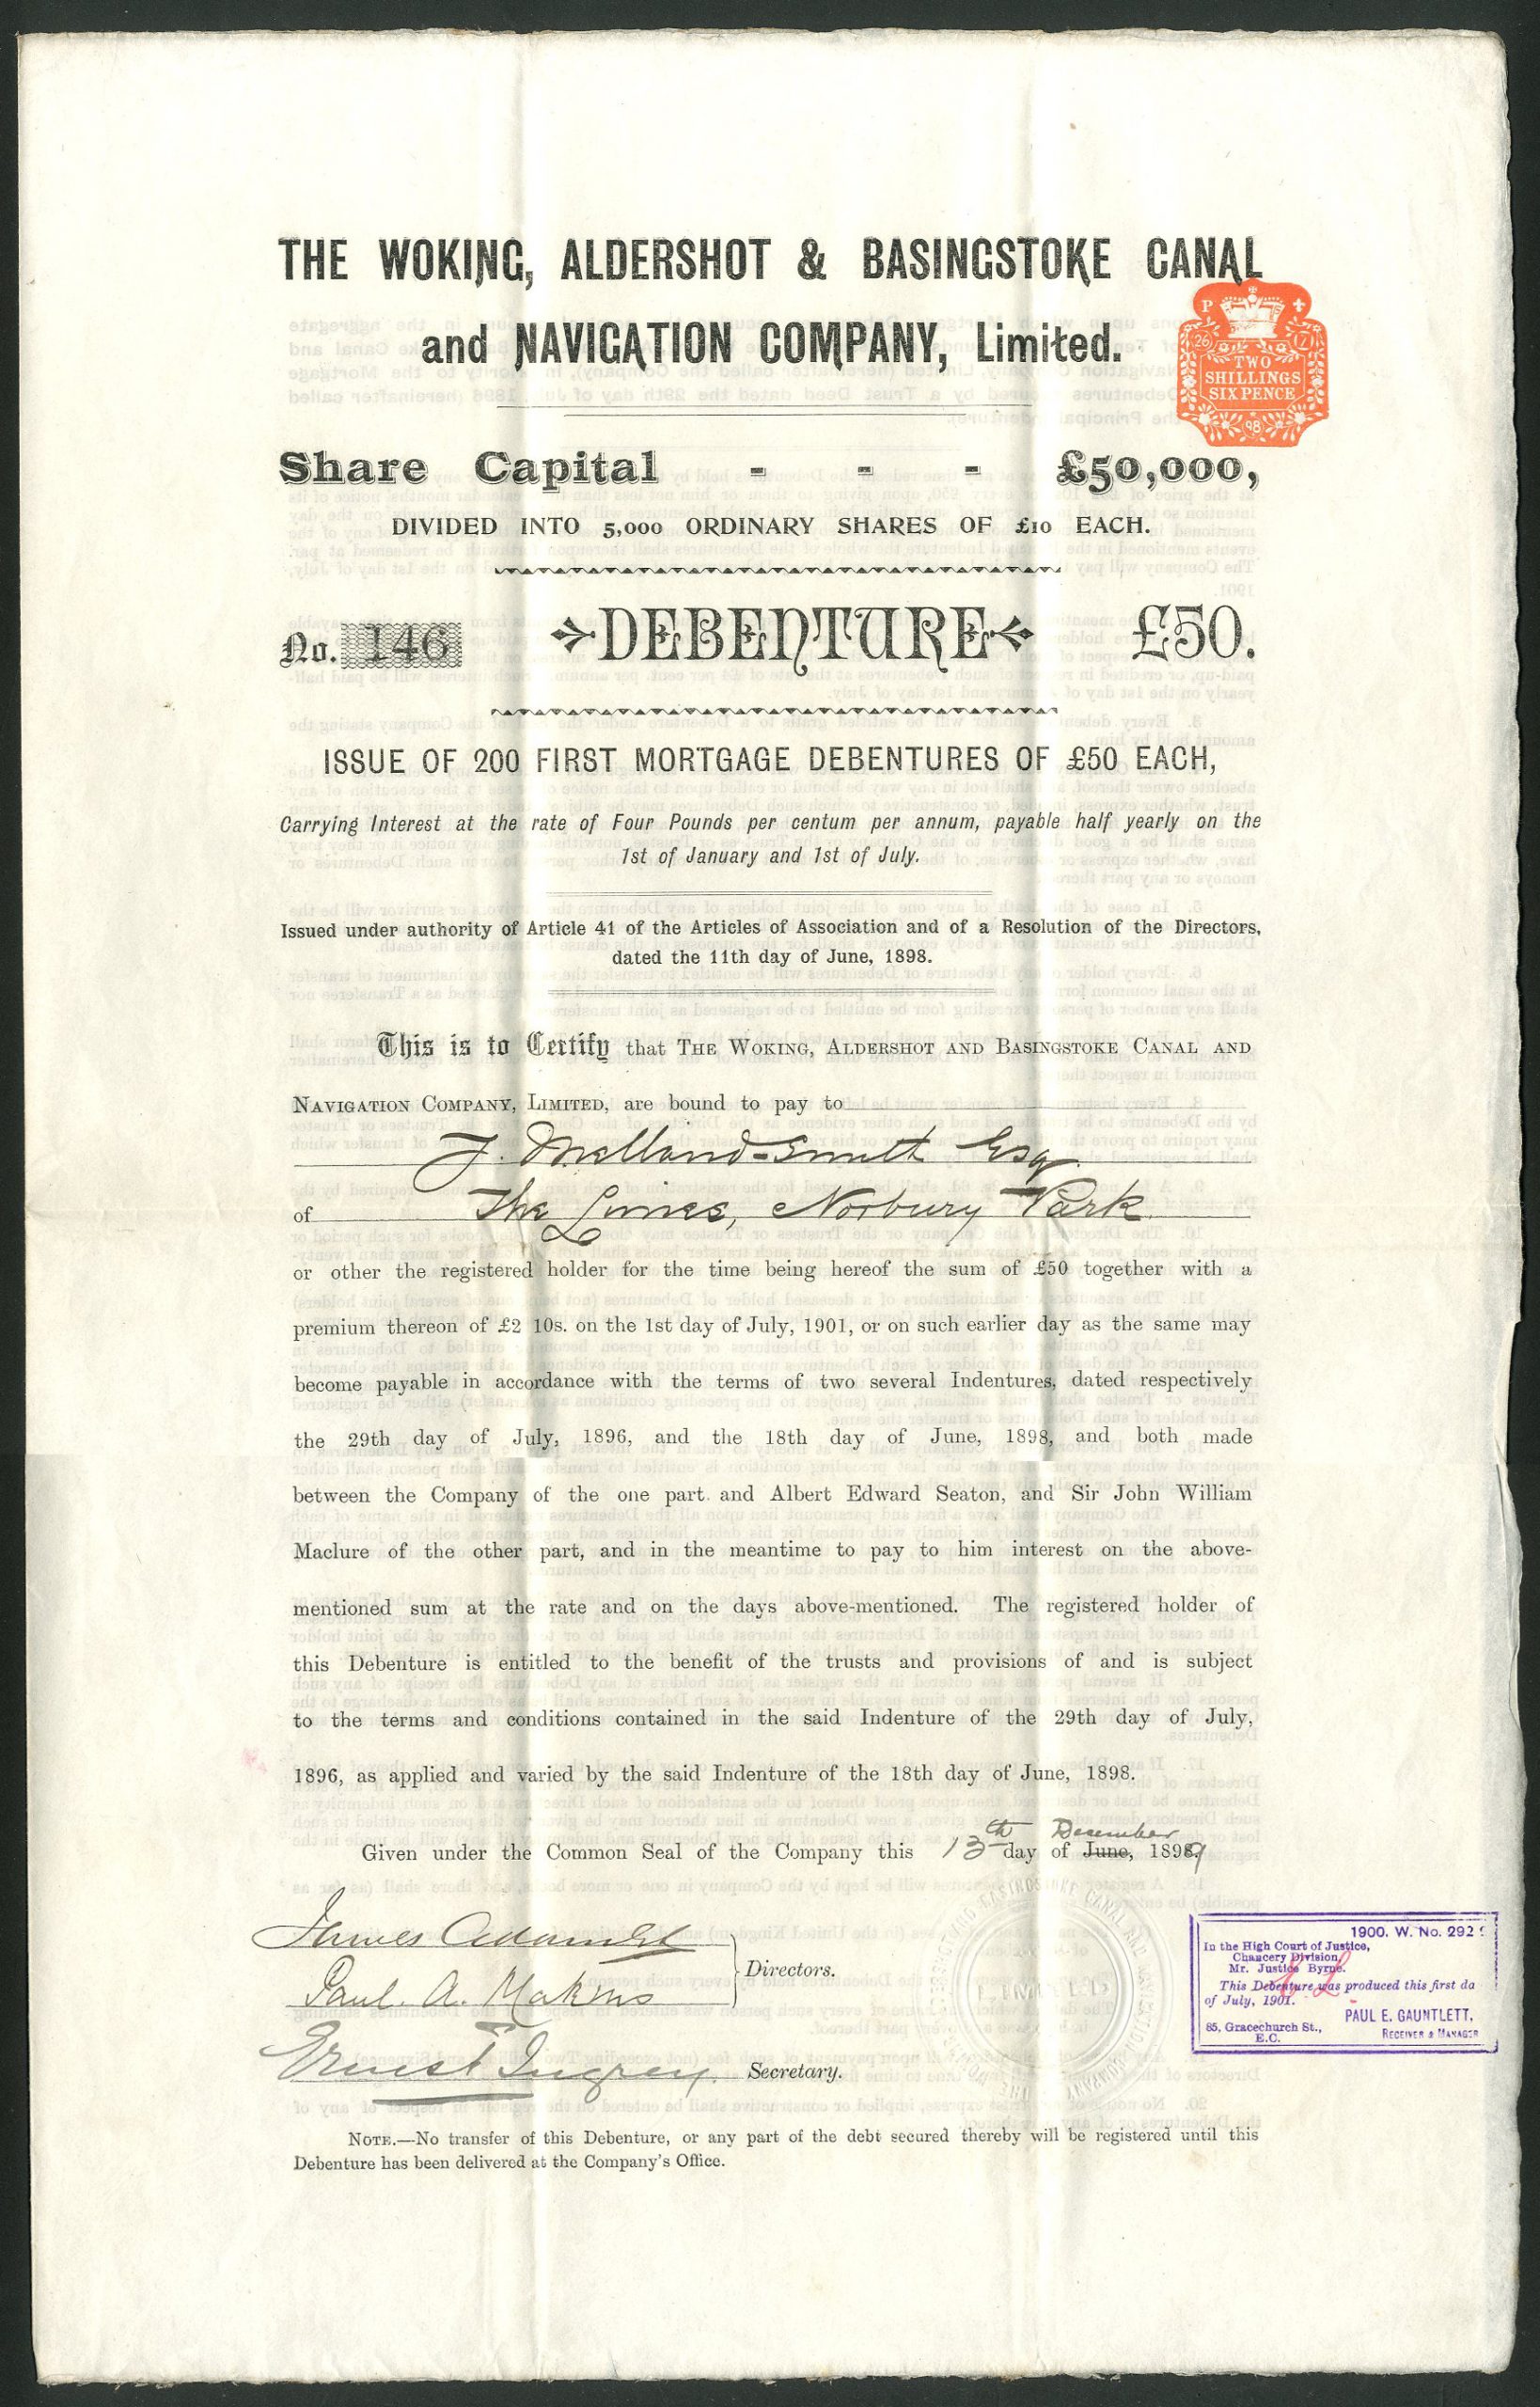 THE WOKING, ALDERSHOT & BASINGSTOKE CANAL
and NAVIGATION COMPANY, Limited.
P
26 7
TWO
SHILLINGS
SIX PENCE
98
Share Capital - - - £50,000,
DIVIDED INTO 5,000 ORDINARY SHARES OF £10 EACH.
No. 146 DEBENTURE £50.
ISSUE OF 200 FIRST MORTGAGE DEBENTURES OF £50 EACH,
Carrying Interest at the rate of Four Pounds per centum per annum, payable half yearly on the
1st of January and 1st of July.
Issued under authority of Article 41 of the Articles of Association and of a Resolution of the Directors,
dated the 11th day of June, 1898.
This is to Certify that THE WOKING, ALDERSHOT AND BASINGSTOKE CANAL AND
NAVIGATION COMPANY, LIMITED, are bound to pay to
J. Melland-Smith Esq
of The Limes, Norbury Park
or other the registered holder for the time being hereof the sum of £50 together with a
premium thereon of £2 10s. on the 1st day of July, 1901, or on such earlier day as the same may
become payable in accordance with the terms of two several Indentures, dated respectively
the 29th day of July, 1896, and the 18th day of June, 1898, and both made
between the Company of the one part and Albert Edward Seaton, and Sir John William
Maclure of the other part, and in the meantime to pay to him interest on the above-
mentioned sum at the rate and on the days above-mentioned. The registered holder of
this Debenture is entitled to the benefit of the trusts and provisions of and is subject
to the terms and conditions contained in the said Indenture of the 29th day of July,
1896, as applied and varied by the said Indenture of the 18th day of June, 1898.
December
Given under the Common Seal of the Company this 13th day of June, 1899
James
Paul. A. Makins
Directors.
Ernest Ingrey. Secretary.
1900. W. No. 292
In the High Court of Justice,
Chancery Division,
Mr. Justice Byrne.
This Debenture was produced this first da
of July, 1901.
PAUL E. GAUNTLETT,
85, Gracechurch St., RECEIVER & MANAGER
E.C.
NOTE.—No transfer of this Debenture, or any part of the debt secured thereby will be registered until this
Debenture has been delivered at the Company's Office.